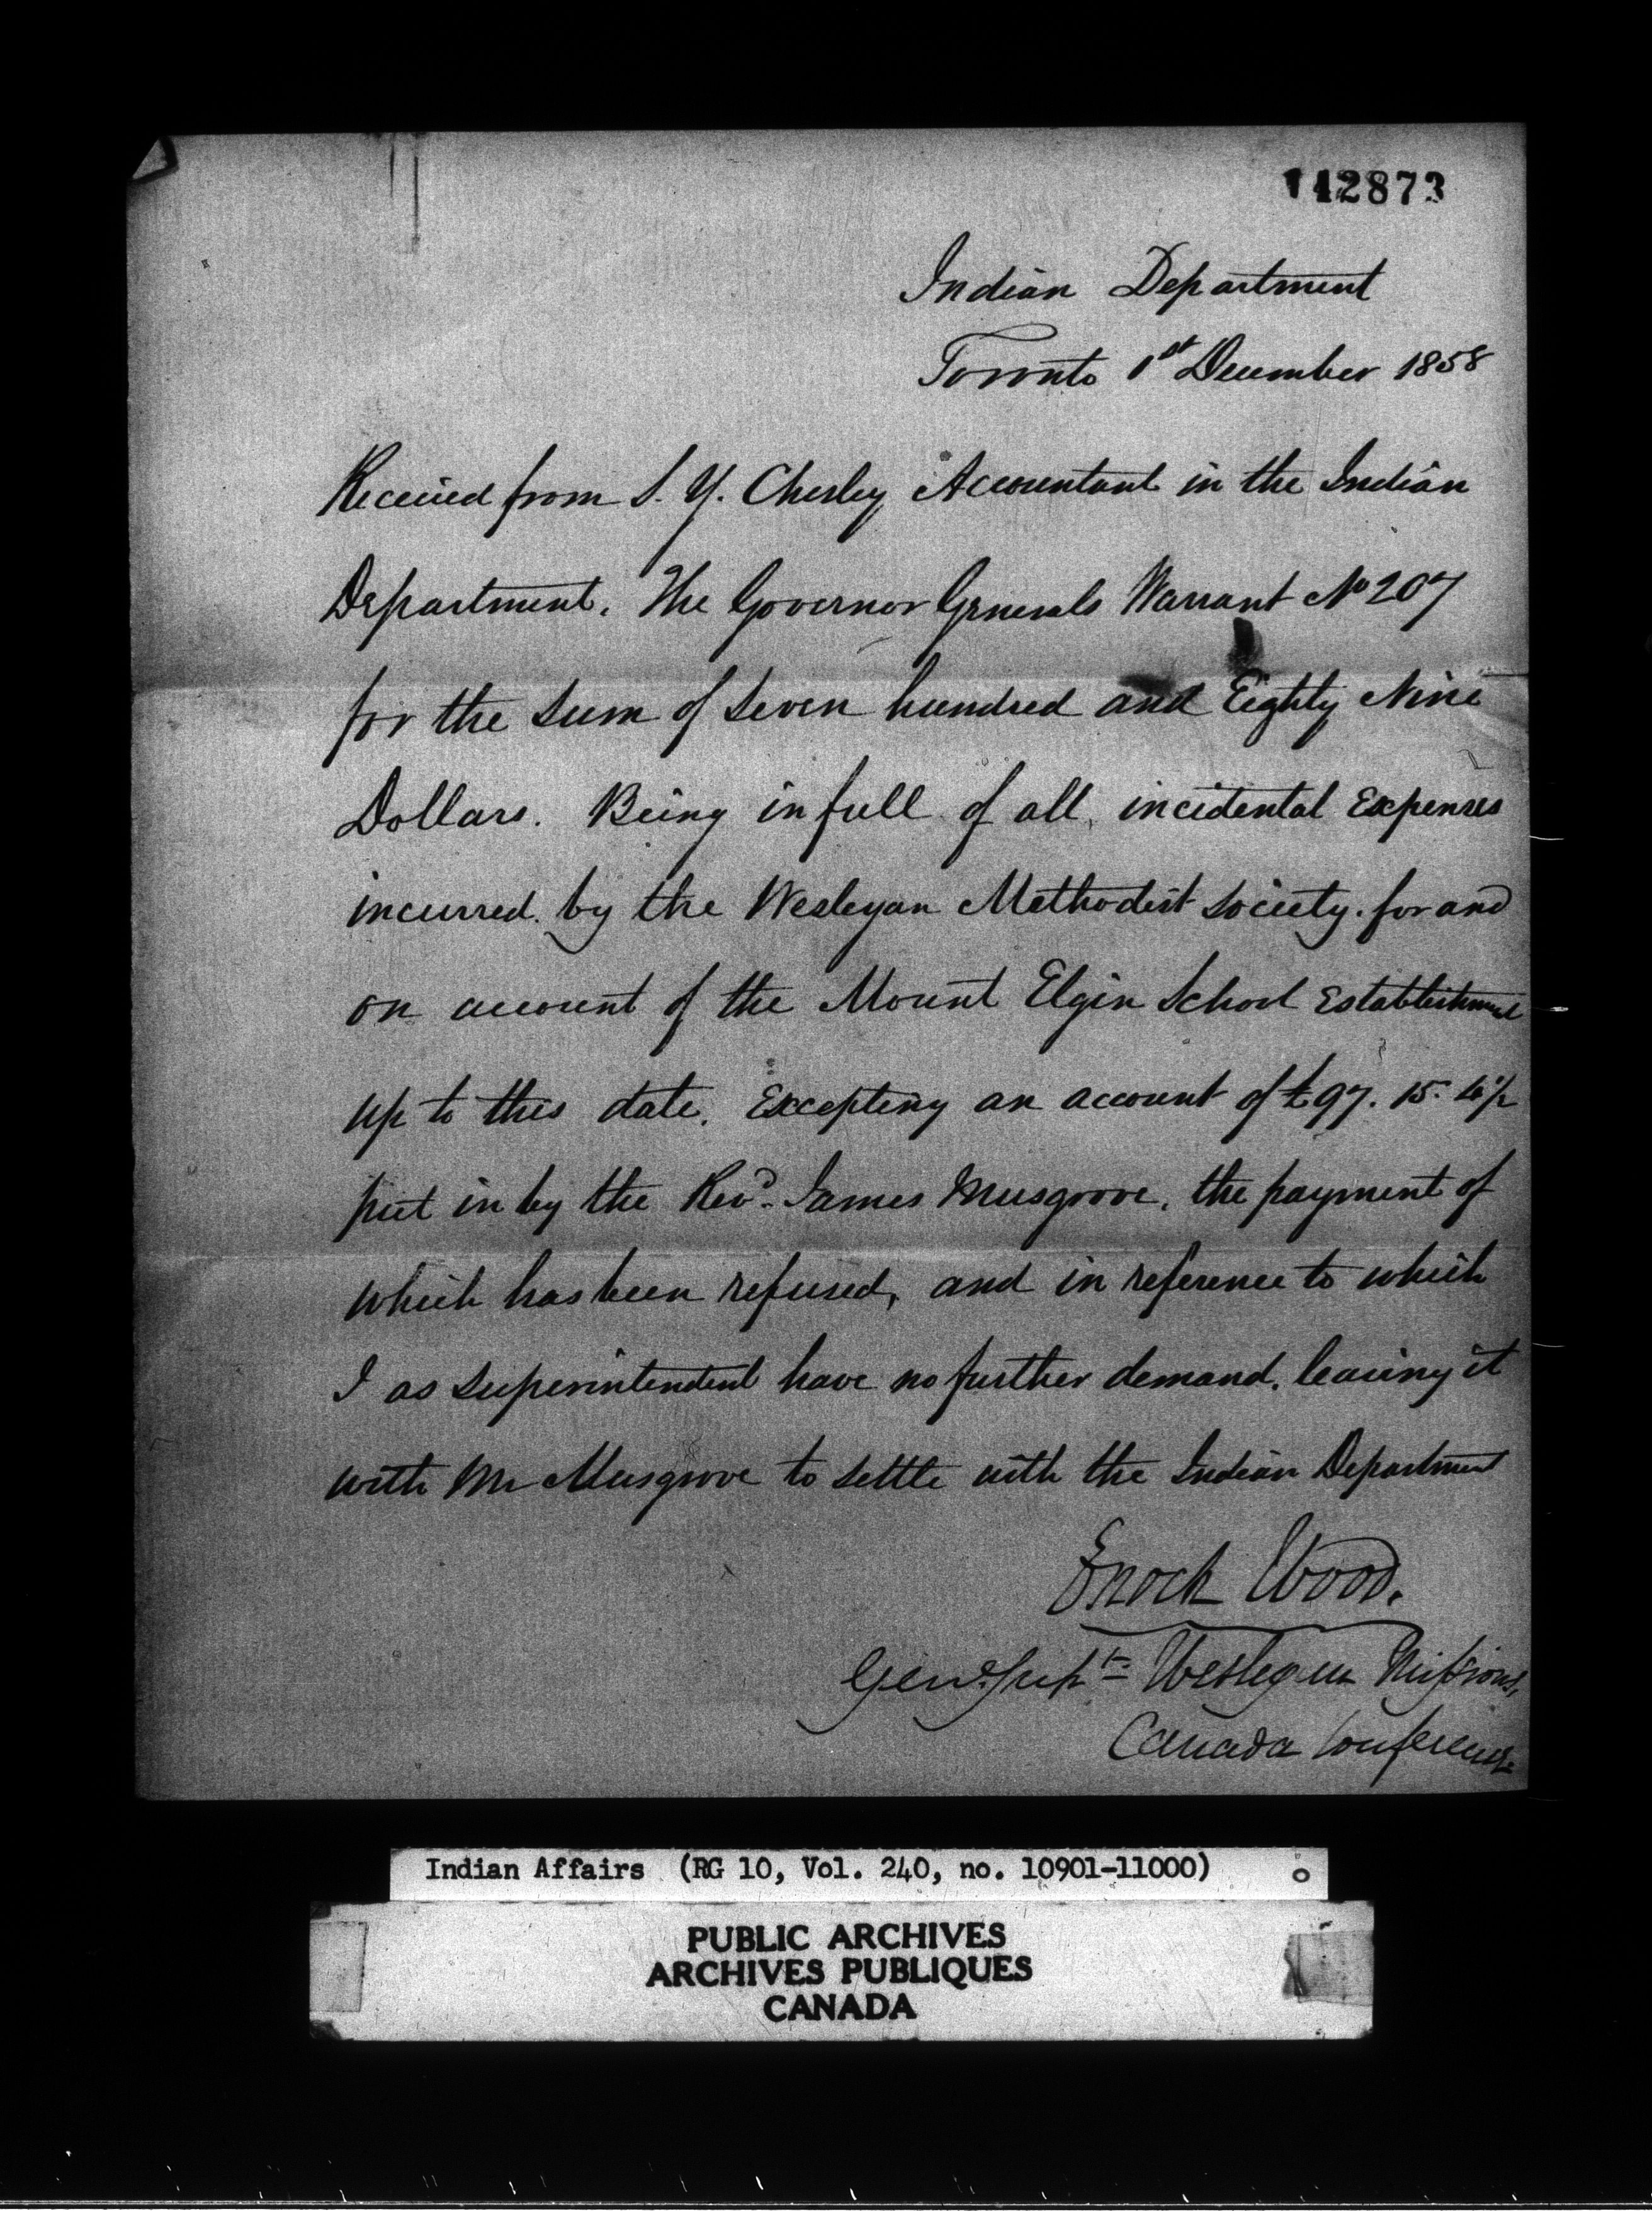 142873
Indian Department
Toronto 1st December 1858
Received from S. Y. Chesley Accountant in the Indian
Department. The Governor Generals Warrant No 207
for the sum of seven hundred and Eighty Nine
Dollars. Being in full of all incidental Expenses
incurred by the Wesleyan Methodist Society. for and
on account of the Mount Elgin School Establishment
up to this date. Excepting an account of £97. 15.
put in by the Revd. James Musgrove. the payment of
which has been refused, and in reference to which
I as Superintendent have no further demand. leaving it
with Mr Musgrove to settle with the Indian Department
Enoch Wood.
Genl. Supt. Wesleyan Missions,
Canada Conference.
Indian Affairs (RG 10, Vol. 240, no. 10901-11000)
PUBLIC ARCHIVES
ARCHIVES PUBLIQUES
CANADA